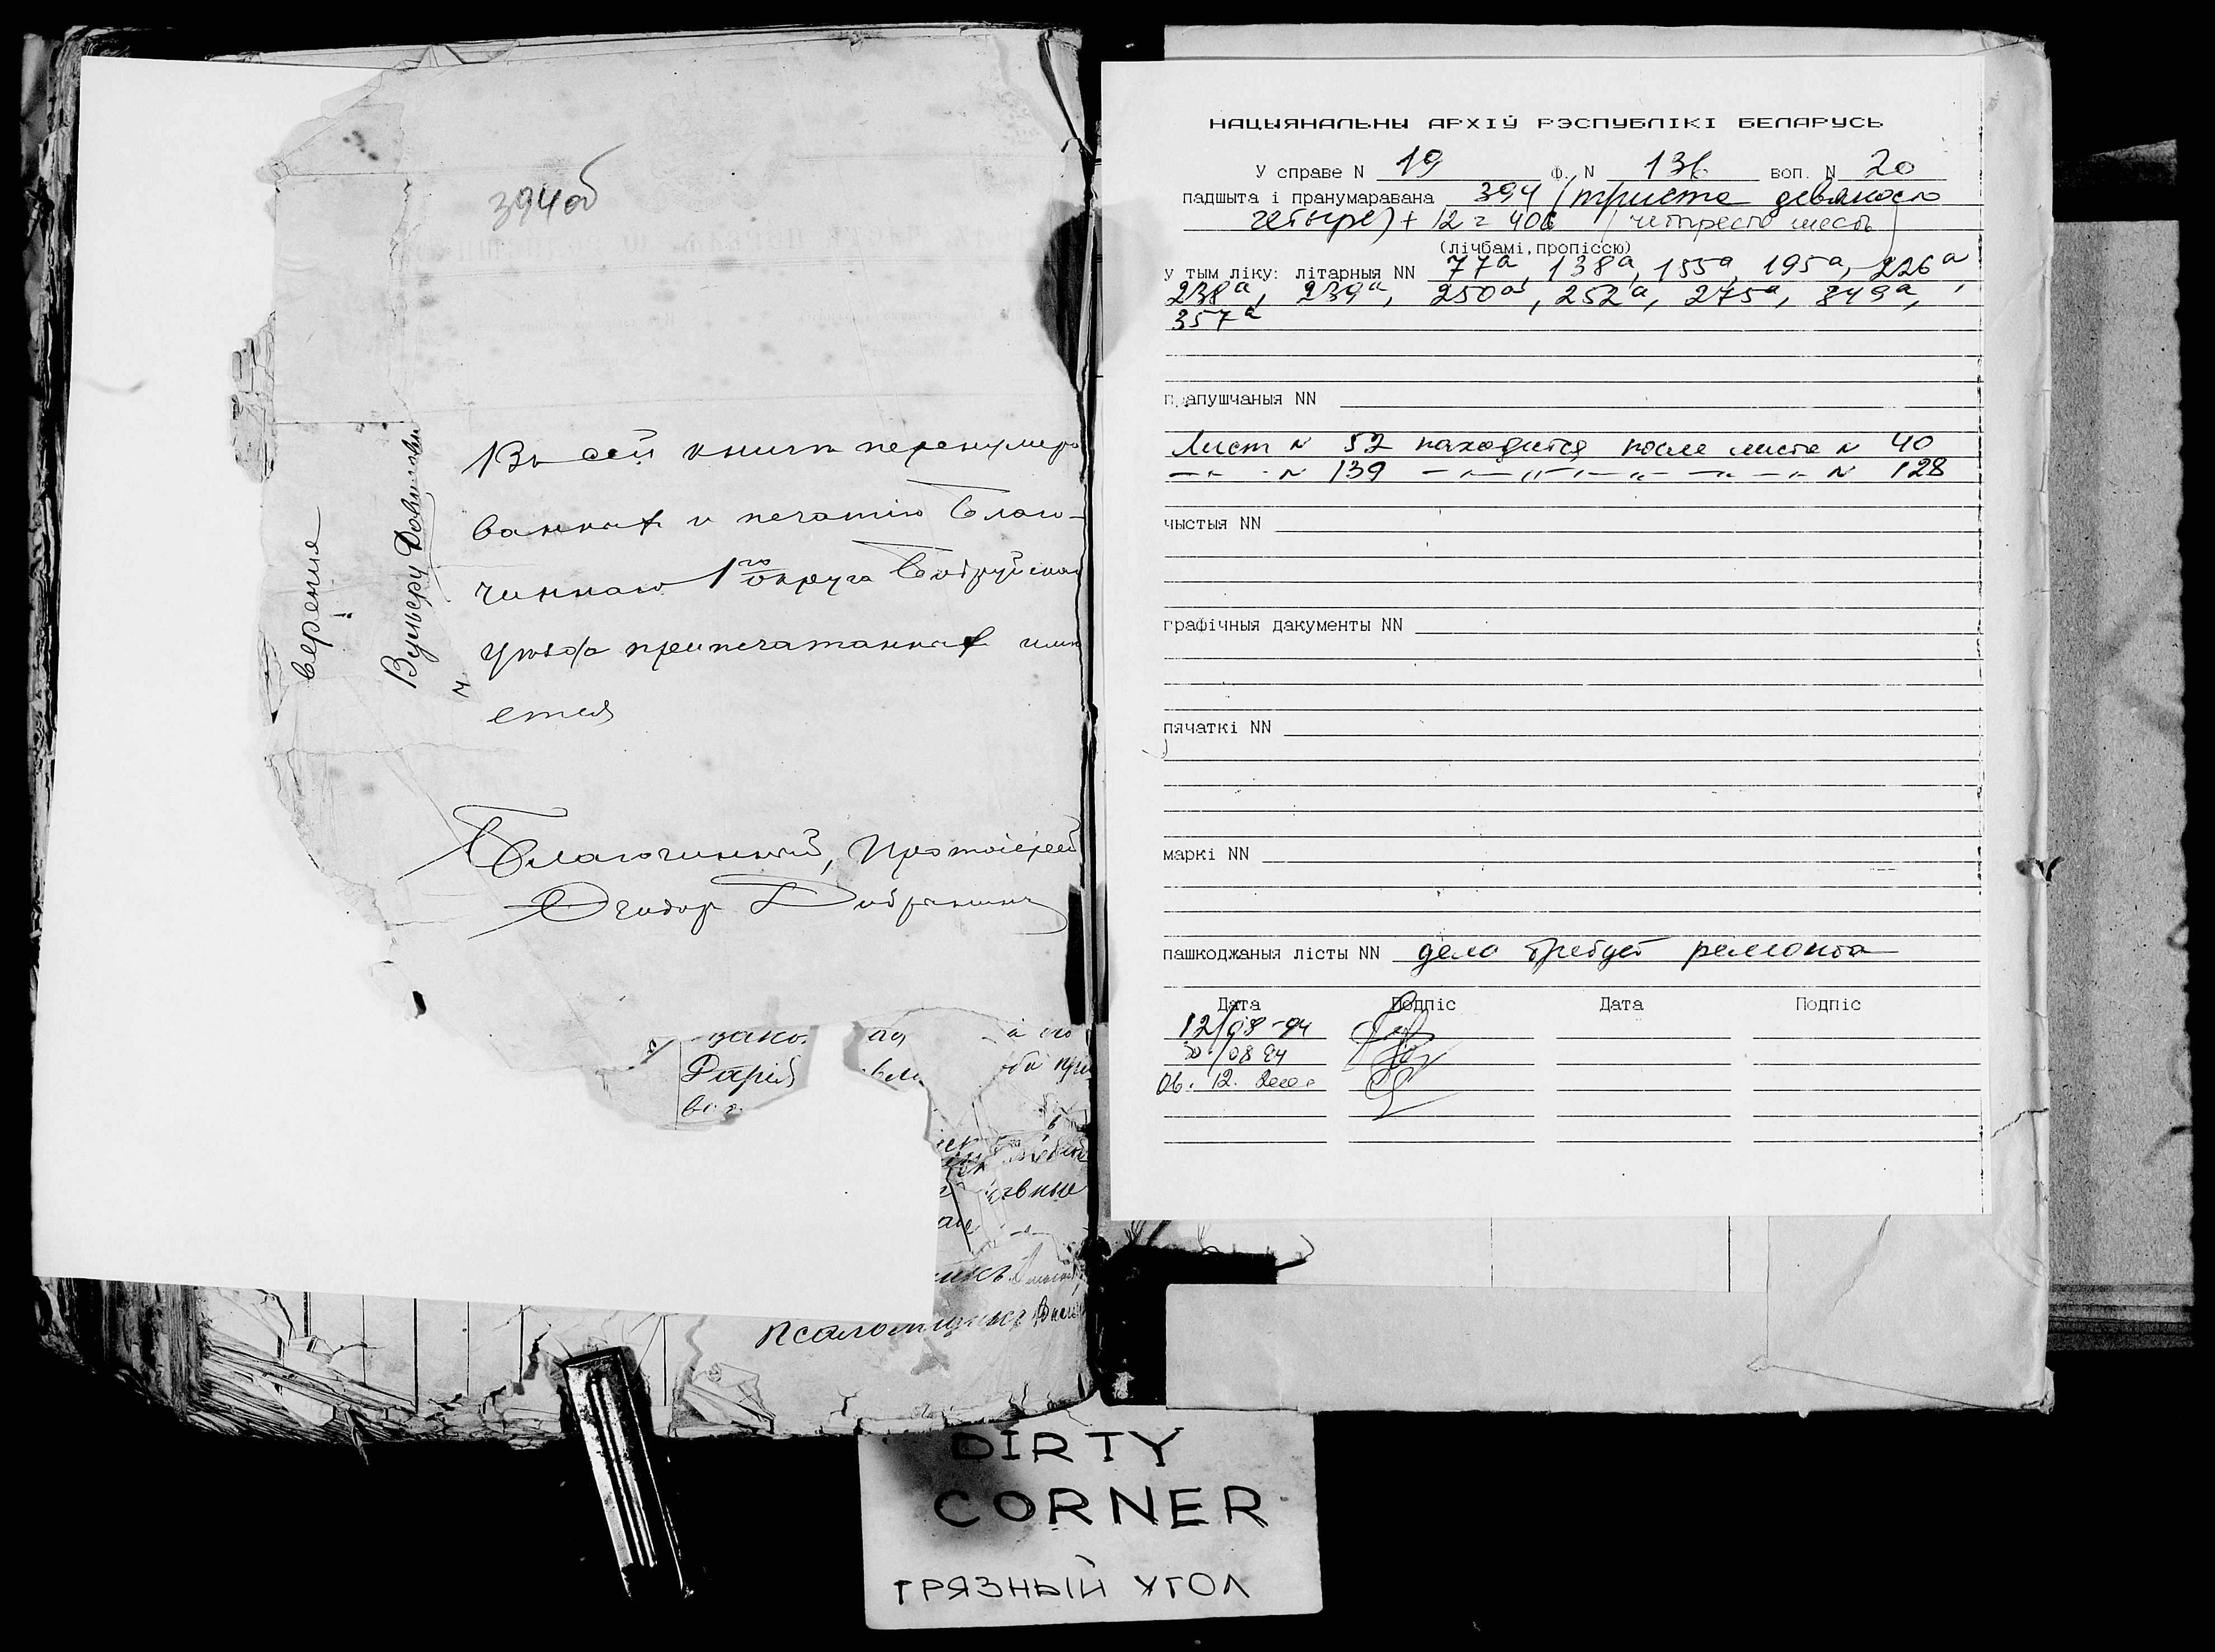 394об
верения
Вульеру
Въ сей книгѣ перенумеро
ванныхъ и печатію Благо-
чиннаго 1го округа Бобруйскаго
уѣзда припечатанныхъ имѣ
ется
Благочинный, Протоіерей
Ѳеодоръ
Дарія
псаломщикъ
НАЦЫЯНАЛЬНЫ АРХІЎ РЭСПУБЛІКІ БЕЛАРУСЬ
У справе N 19 Ф. N 136 воп. N 20
падшыта і пранумаравана 394 (триста девяносто
четыре) + 12 = 406 (четыреста шесть)
(лічбамі, пропіссю)
у тым ліку: літарныя NN 77а, 138а, 155а, 195а, 226а
238а, 239а, 250а, 252а, 275а, 349а,
357а
прапушчаныя NN
Лист N 52 находится после листа N 40
—"— N 139 —"— —"— —"— N 128
чыстыя NN
графічныя дакументы NN
пячаткі NN
маркі NN
пашкоджаныя лісты NN дело требует ремонта
Дата Подпіс Дата Подпіс
12/08-94
30/08 94
06. 12. 2000г
DIRTY
CORNER
ГРЯЗНЫЙ УГОЛ